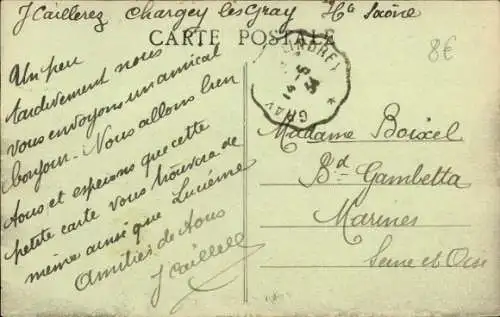 J Caillerez Chargey les Gray Hte Saône
CARTE POSTALE
8€
GRAY
Un peu
tardivement nous
vous envoyons un amical
bonjour. Nous allons bien
tous et esperons que cette
petite carte vous trouvera de
même ainsi que Lucienne
Amitiés de tous
Madame Boixel
Bd Gambetta
Marines
Seine et Oise